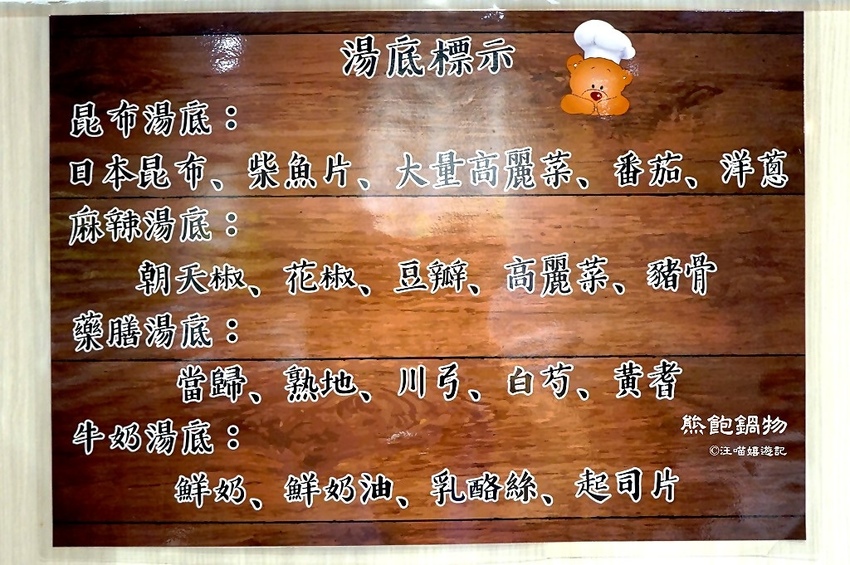 湯底標示
昆布湯底：
日本昆布、柴魚片、大量高麗菜、番茄、洋蔥
麻辣湯底：
朝天椒、花椒、豆瓣、高麗菜、豬骨
藥膳湯底：
當歸、熟地、川弓、白芍、黃耆
牛奶湯底：
鮮奶、鮮奶油、乳酪絲、起司片
熊飽鍋物
©汪喵嬉遊記